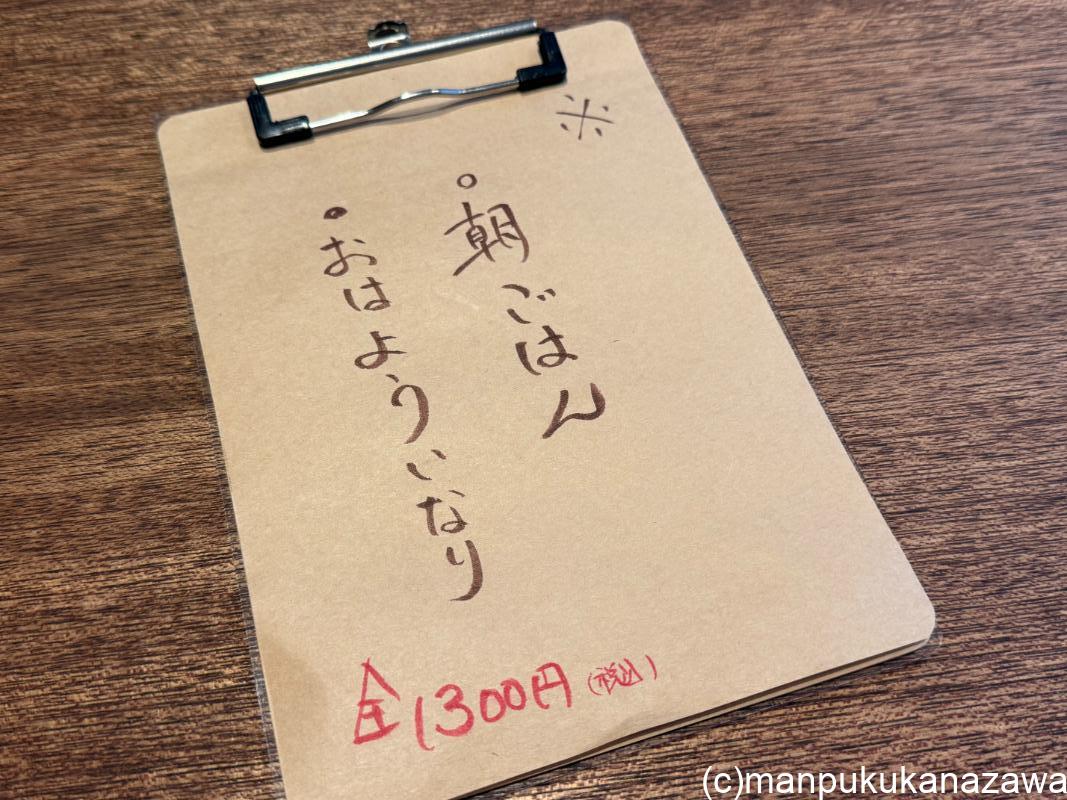 ※
○朝ごはん
・おはよういなり
全1300円(税込)
(c)manpukukanazawa